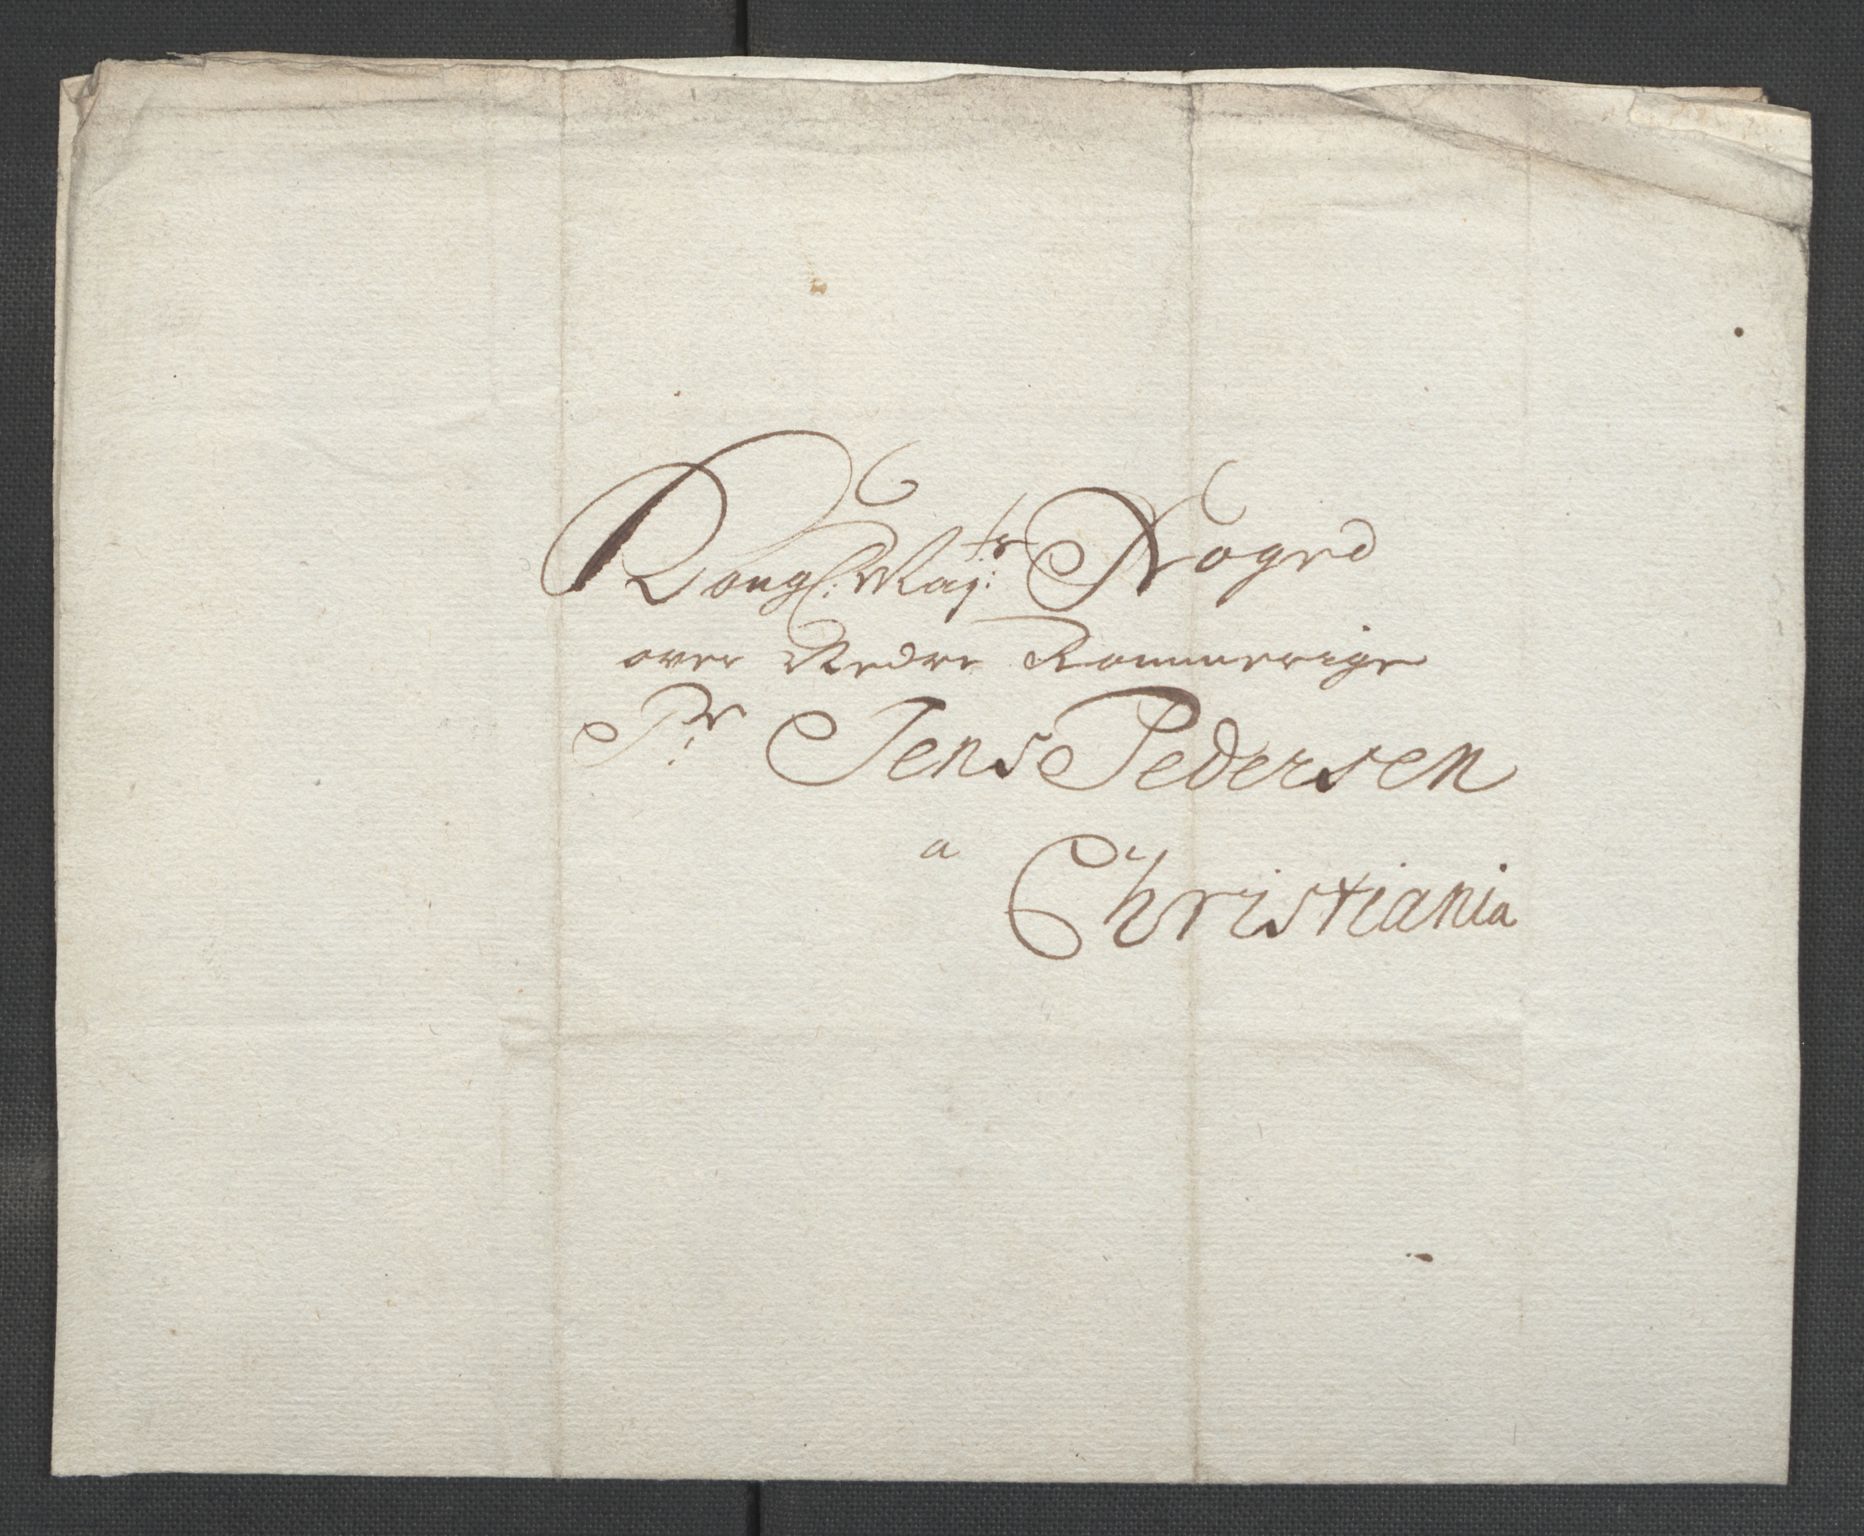 Kongl: Maj:ts Foged
over Nedre Rommerige
Sr: Jens Pedersen
a
Christiania